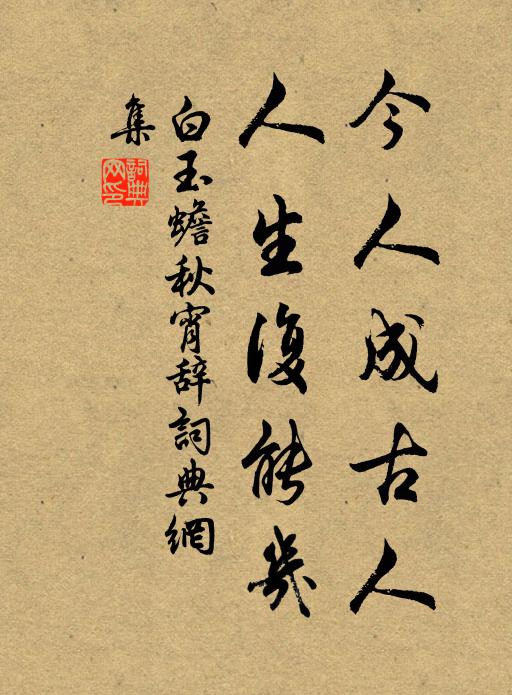 今人成古人
人生復能幾
白玉蟾秋宵辞詞典網
集
詞典
网印